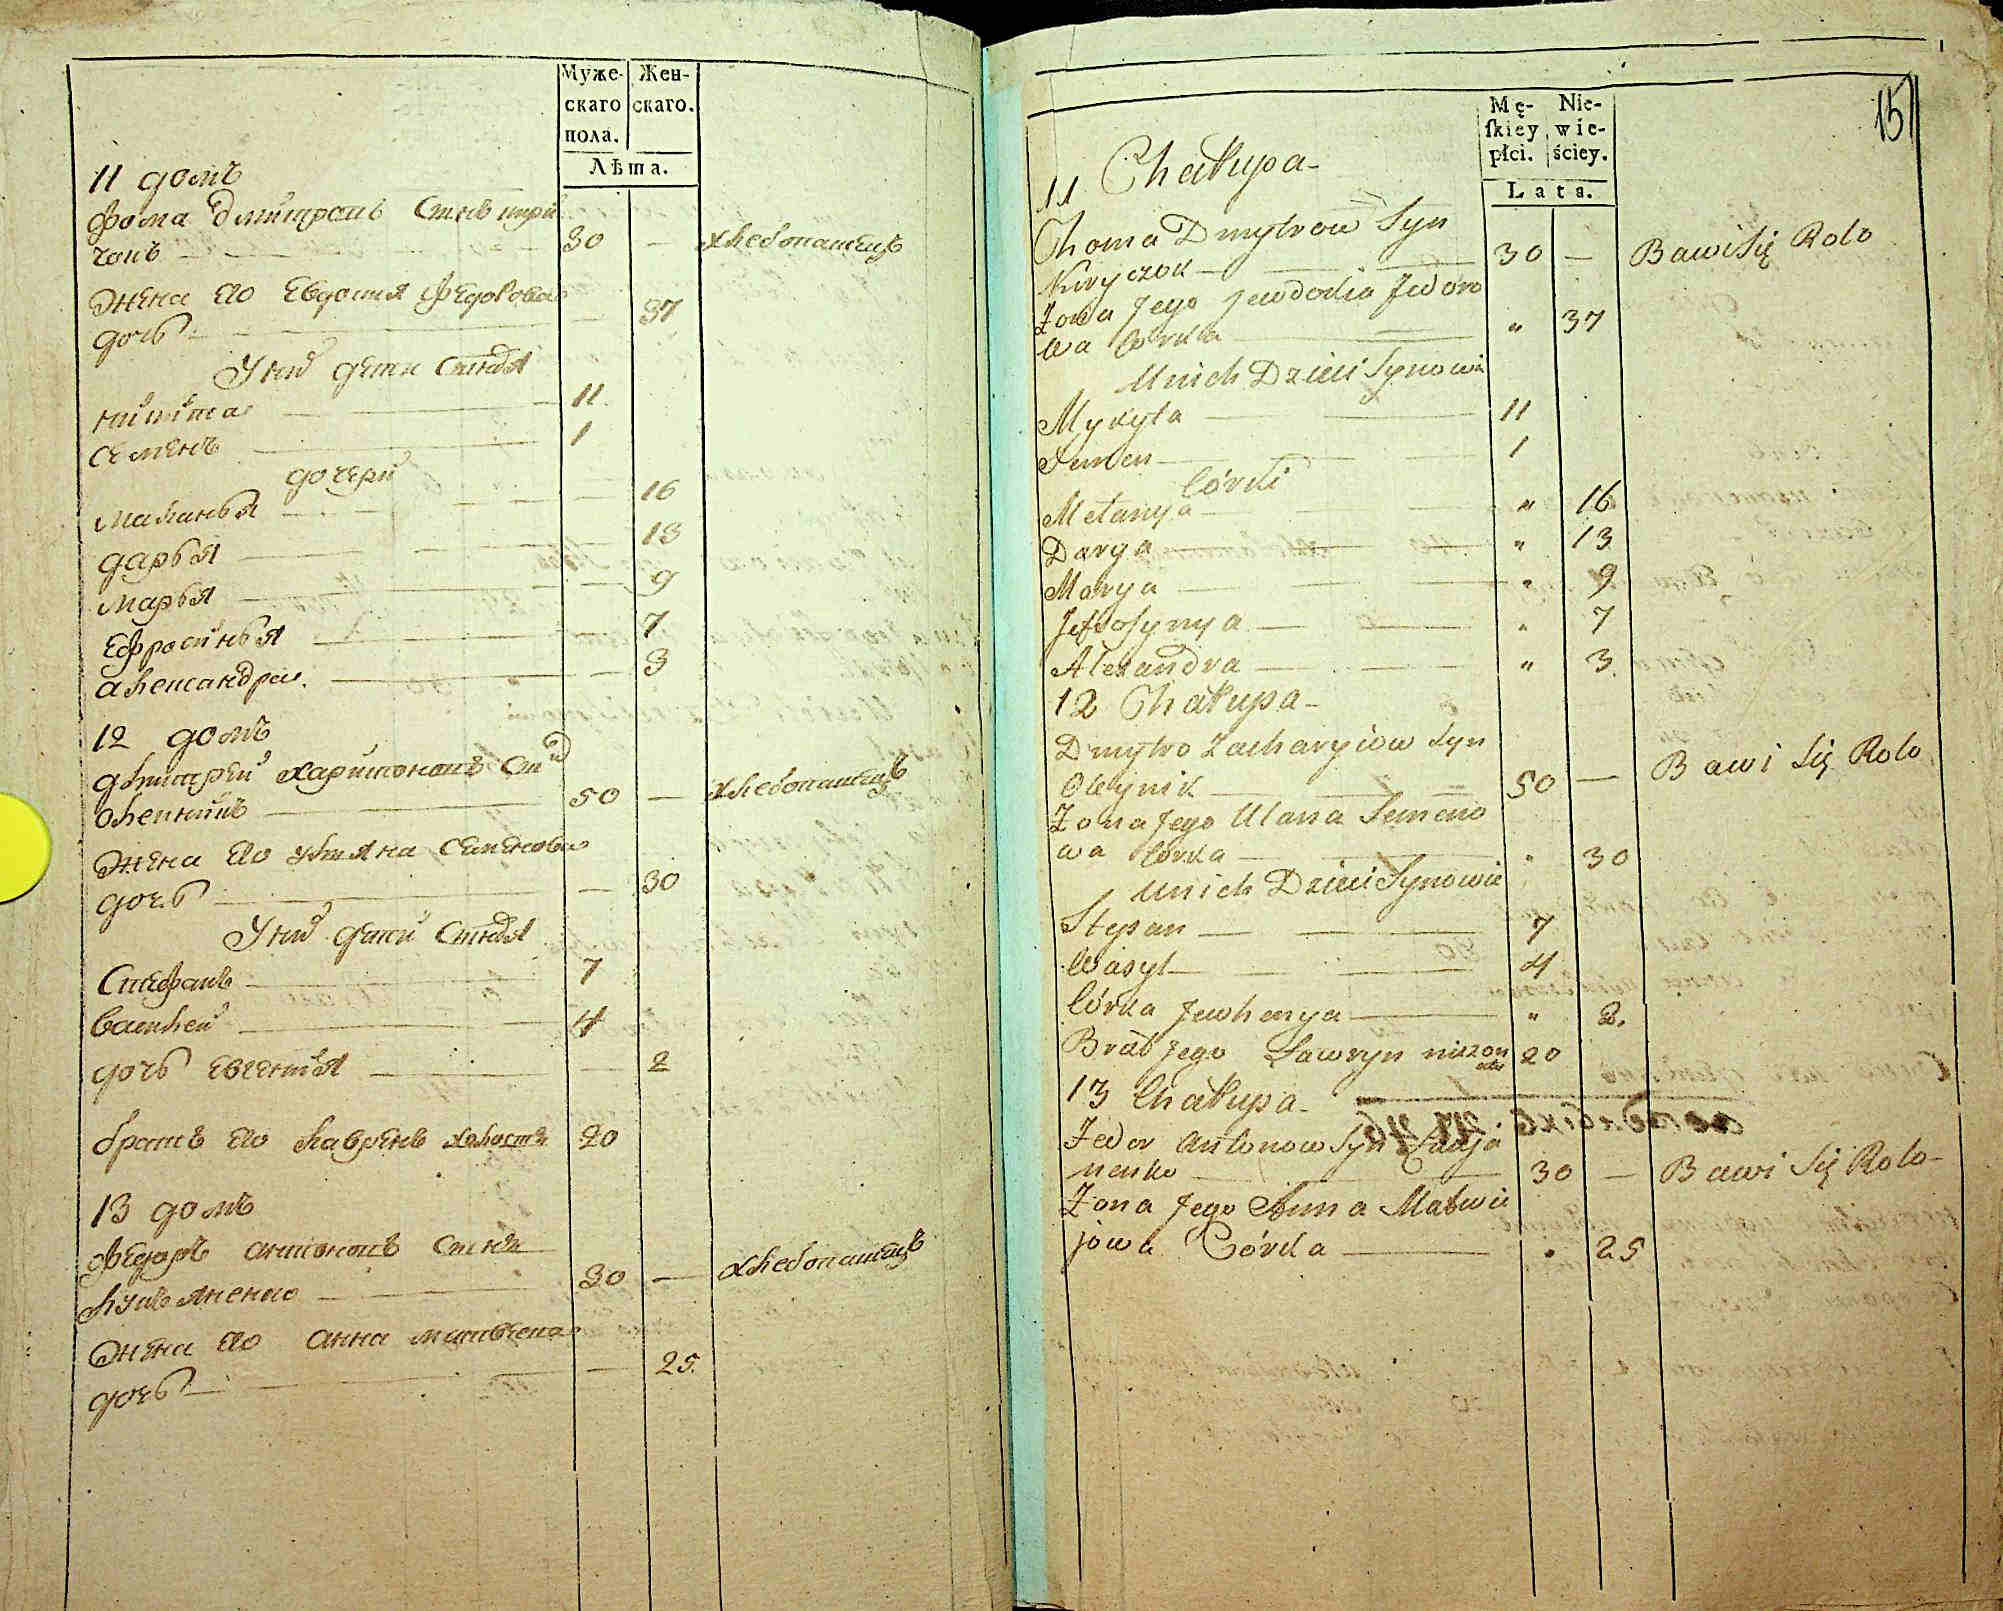 Муже-
скаго
пола.
Жен-
скаго.
Лѣта.
11 домъ
Фома Дмитровъ Сынъ
чокъ 30 — хлебопашецъ
Жена его Евдокия Федорова
дочь — 37
У них дети Сыновья
Никита 11
Семенъ 1
дочери
Маланья — 16
Дарья 13
Марья — 9
Ефросинья — 7
александра — 3
12 домъ
Дмитрей Харитоновъ Сын
Олейникъ 50 — хлебопашецъ
Жена его Ульяна Семенова
дочь — 30
У них дети Сыновья
Стефанъ 7
Василей 4
дочь Евгения — 2
братъ его лаврѣнъ холостъ 20
13 домъ
Федоръ антоновъ Сынъ
30 — хлебопашецъ
Жена его анна матвеева
дочь — 25.
157
Mę-
ſkiéy
płci.
Nie-
wie-
ściey.
Lata.
11 Chałupa
Choma Dmytrow Syn
Kuryczok 30 — Bawi Się Rolo
Żona Jego Jewdodia Fedoro
wa Córka " 37
U nich Dzieci Synowie
Mykyta 11
Semen 1
Córki
Małanya " 16
Darya " 13
Marya " 9
Jefrosynya " 7
Alexandra " 3
12 Chałupa
Dmytro Zacharyiow Syn
Oleynik 50 — Bawi Się Rolo
Żona Jego Ulana Semeno
wa Córka " 30
U nich Dzieci Synowie
Stepan 7
Wasyl 4
Córka Jewhenya " 2.
Brat Jego Ławryn nieżon
aty 20
13 Chałupa
Fedor Antonow Syn
nenko 30 — Bawi Się Rolo
Żona Jego Anna Matwie
jowa Córka " 25